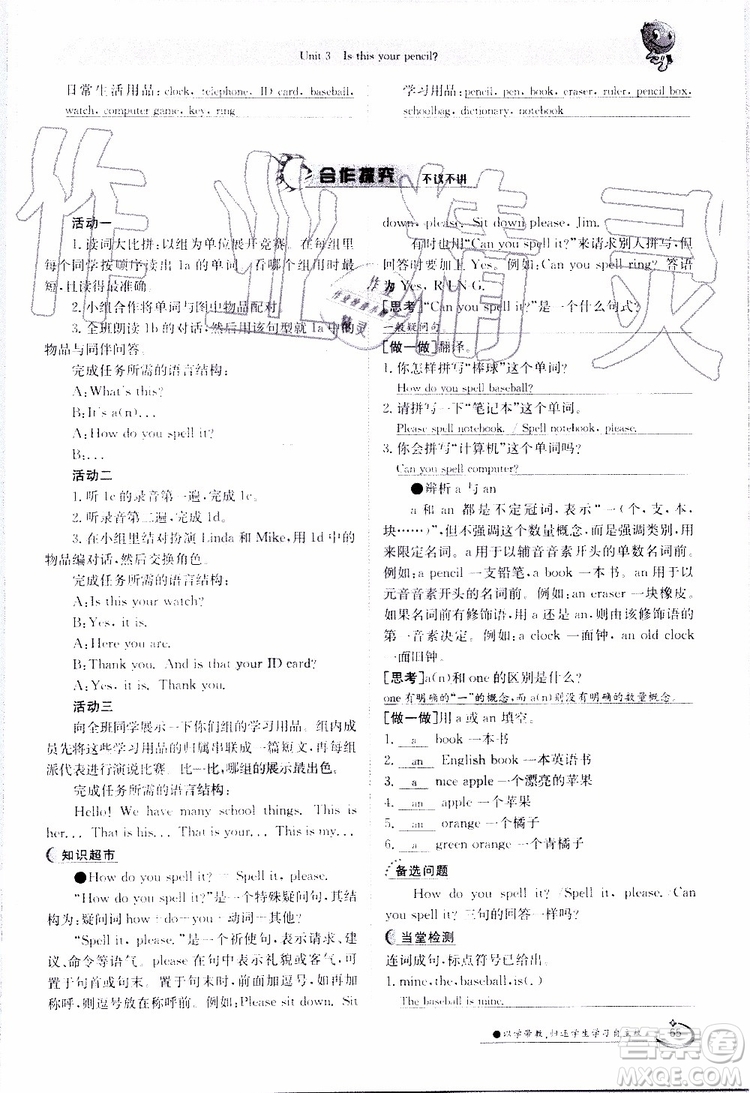 Unit 3 Is this your pencil?
日常生活用品:clock, telephone, ID card, baseball,
watch, computer game, key, ring
学习用品:pencil, pen, book, eraser, ruler, pencil box,
schoolbag, dictionary, notebook
合作探究 不议不讲
活动一
1. 读词大比拼:以组为单位展开竞赛。小组里
每个同学按顺序读出 1a 的单词。看哪个组读得最
快且读得最准。
2. 小组合作将单词与图中物品配对。
3. 全班朗读 1b 的对话,然后用该句型就 1a 中的
物品与同伴问答。
完成任务所需的语言结构:
A:What's this?
B:It's a(n)...
A:How do you spell it?
B:...
活动二
1. 听 1c 的录音第一遍,完成 1c。
2. 听录音第二遍,完成 1d。
3. 在小组里结对扮演 Linda 和 Mike,用 1d 中的
物品编对话,然后交换角色。
完成任务所需的语言结构:
A:Is this your watch?
B:Yes, it is.
A:Here you are.
B:Thank you. And is that your ID card?
A:Yes, it is. Thank you.
活动三
向全班同学展示一下你们组的学习用品。组内成
员先将这些学习用品的归属串联成一篇短文,再每组
派代表进行演说比赛。比一比,哪组的展示最出色。
完成任务所需的语言结构:
Hello! We have many school things. This is
her... That is his... That is your... This is my...
知识超市
●How do you spell it? = Spell it, please.
"How do you spell it?"是一个特殊疑问句,其结
构为:疑问词 how+do+you+动词+其他?
"Spell it, please."是一个祈使句,表示请求、建
议、命令等语气。please 在句中表示礼貌或客气,可
置于句首或句末。置于句末时,前面加逗号,后面加
称呼,呼号为放在称呼前。例如:Please sit
down, please. Sit down please, Jim.
有时也用"Can you spell it?"来请求别人拼写,但
回答时要加上 Yes。例如:Can you spell ring? 答语
为 Yes, R-I-N-G.
[思考]"Can you spell it?"是一个什么句式?
一般疑问句
[做一做]翻译。
1. 你怎样拼写"棒球"这个单词?
How do you spell baseball?
2. 请拼写一下"笔记本"这个单词。
Please spell notebook. / Spell notebook, please.
3. 你会拼写"计算机"这个单词吗?
Can you spell computer?
●辨析 a 与 an
a 和 an 都是不定冠词,表示"一(个,支,本,
块……)",但不强调这个数量概念,而是强调类别,用
来限定名词。a 用于以辅音音素开头的单数名词前。
例如:a pencil 一支铅笔,a book 一本书。an 用于以
元音音素开头的名词前。例如:an eraser 一块橡皮。
如果名词有修饰语,用 a 还是 an,则由该修饰语的
第一音素决定。例如:a clock 一面钟,an old clock
一面旧钟。
[思考]a(n)和 one 的区别是什么?
one 有明确的"一"的概念,而 a(n)则没有明确的数量概念。
[做一做]用 a 或 an 填空。
1. a book 一本书
2. an English book 一本英语书
3. a nice apple 一个漂亮的苹果
4. an apple 一个苹果
5. an orange 一个橘子
6. a green orange 一个青橘子
备选问题
How do you spell it? /Spell it, please. /Can
you spell it? 三句的回答一样吗?
当堂检测
连词成句,标点符号已给出。
1. mine, the, baseball, is(.)
The baseball is mine.
●以学带教,归还学生学习自主权
65
作业精灵
MXQE.COM